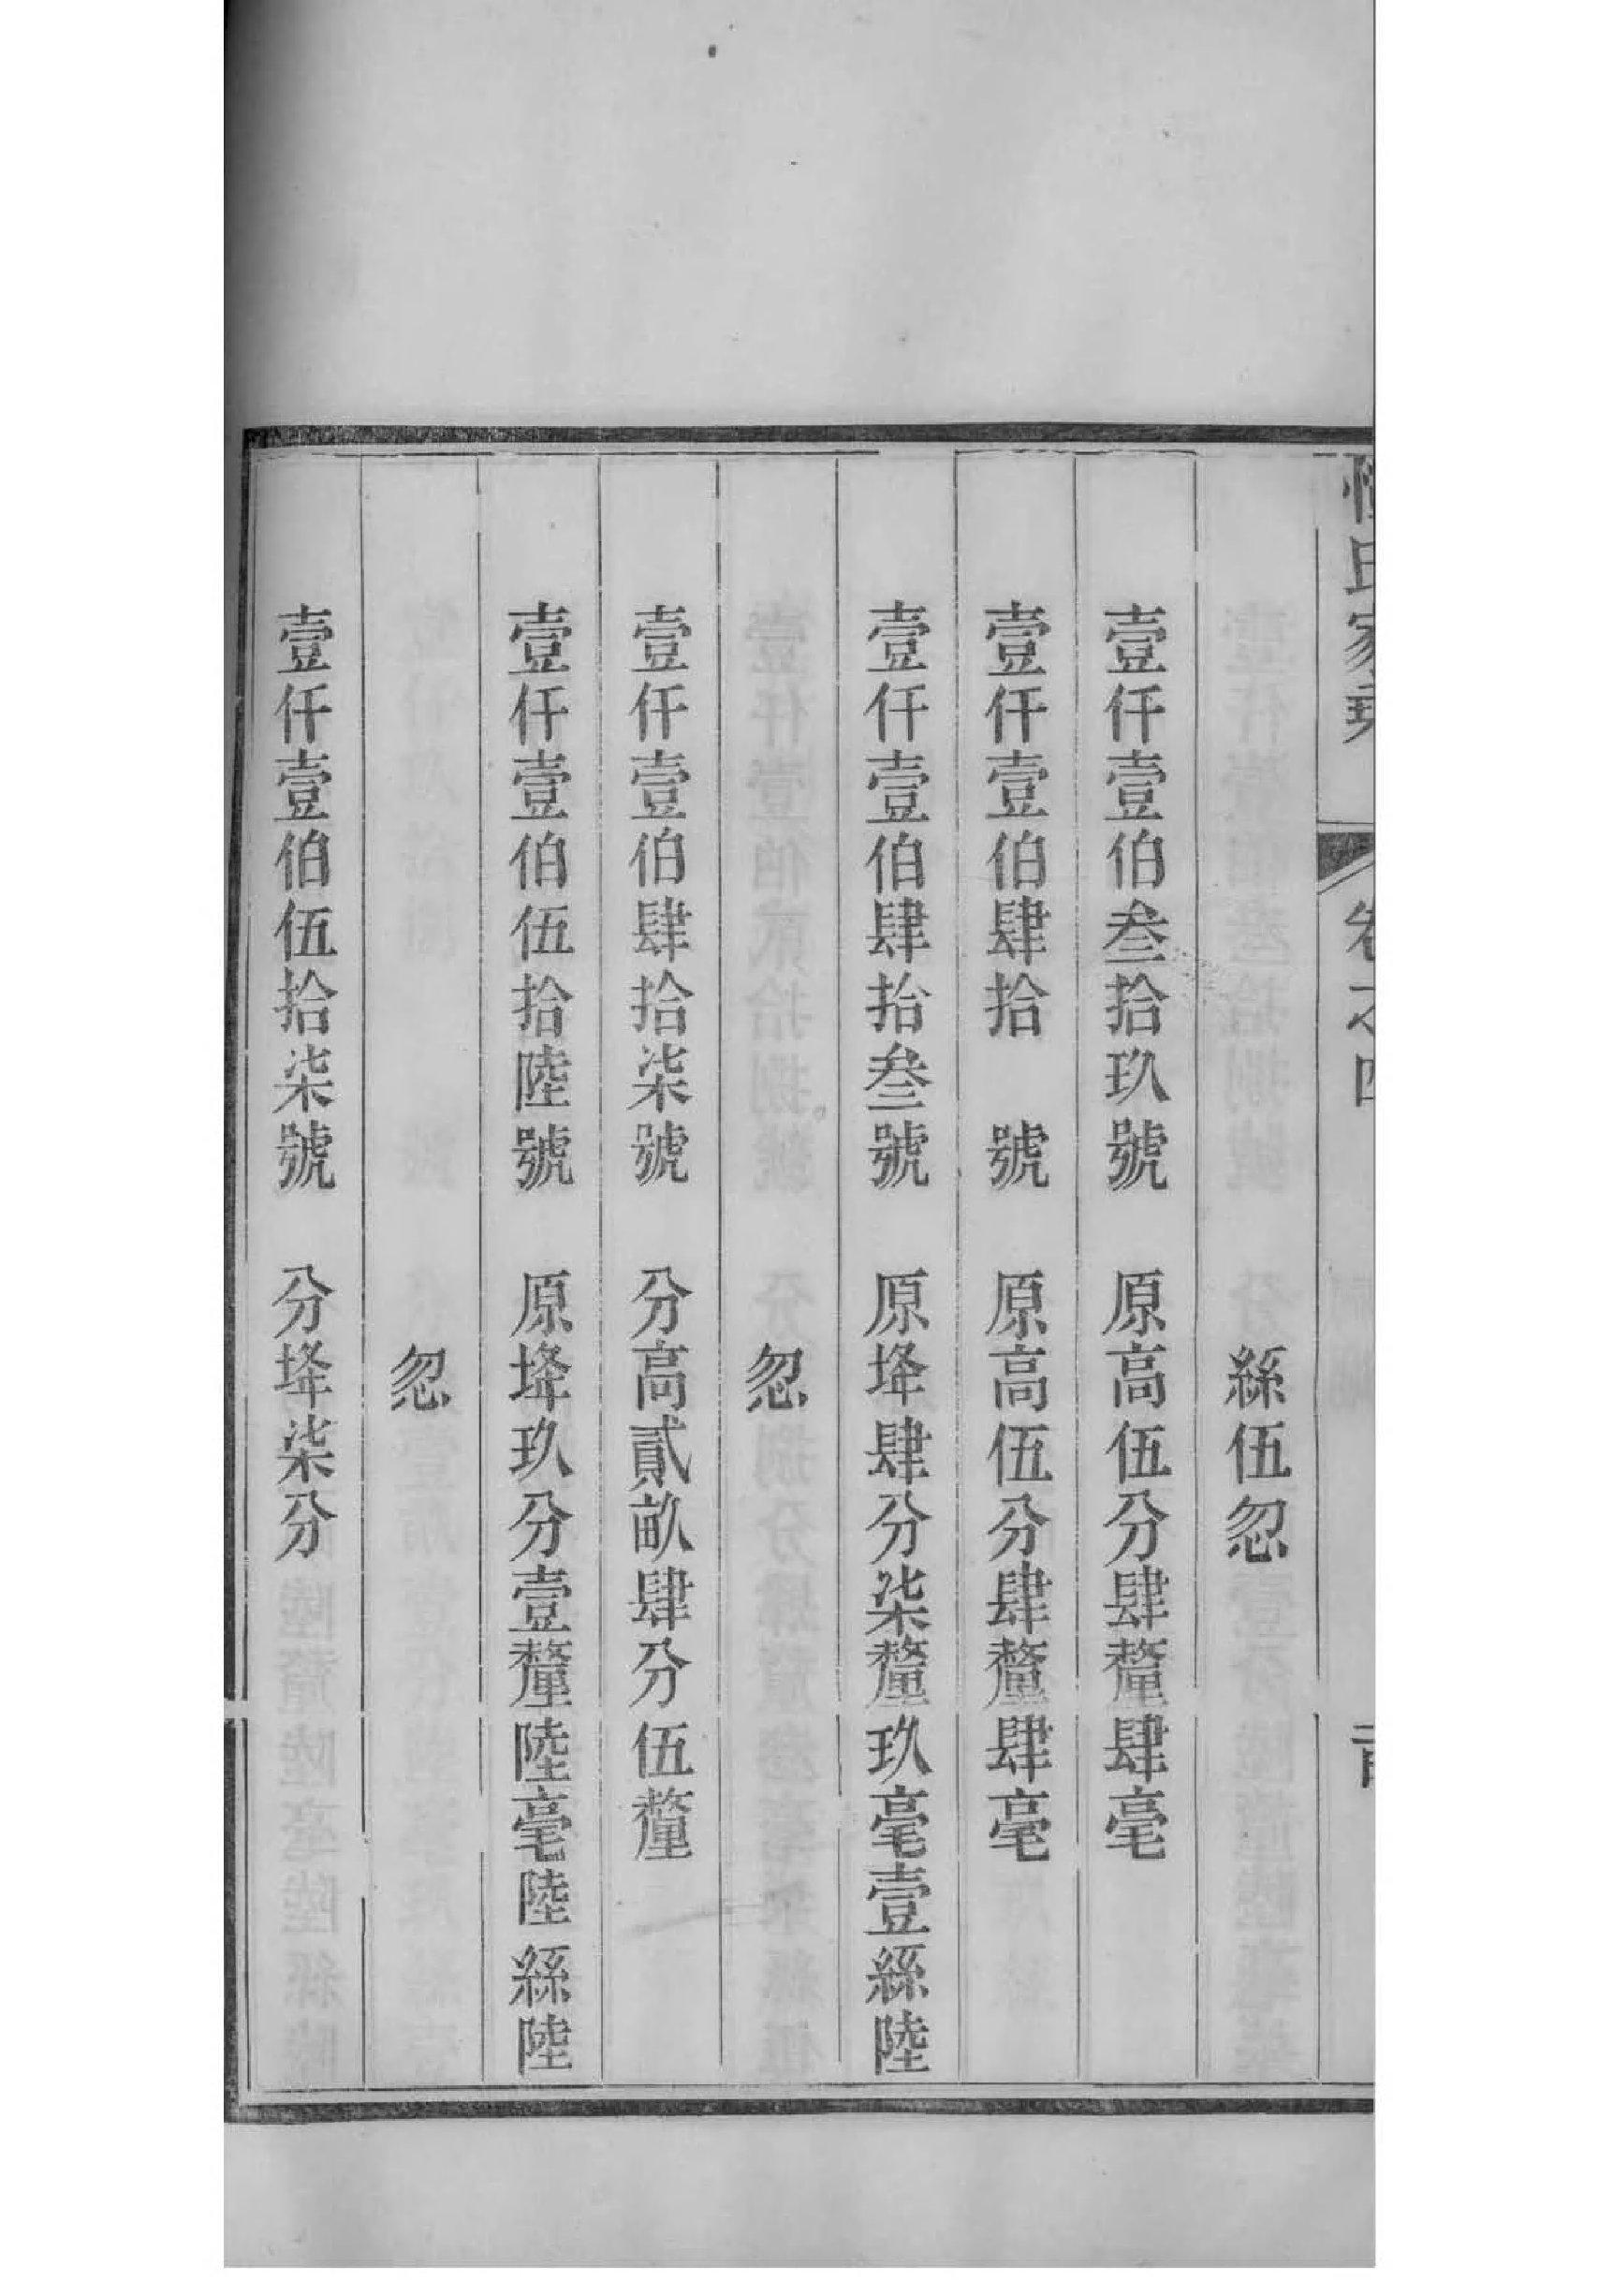 氏家乘 卷之四
絲伍忽
壹仟壹伯叁拾玖號 原高伍分肆釐肆毫
壹仟壹伯肆拾 號 原高伍分肆釐肆毫
壹仟壹伯肆拾叁號 原垾肆分柒釐玖毫壹絲陸
忽
壹仟壹伯肆拾柒號 分高貳畝肆分伍釐
壹仟壹伯伍拾陸號 原垾玖分壹釐陸毫陸絲陸
忽
壹仟壹伯伍拾柒號 分垾柒分